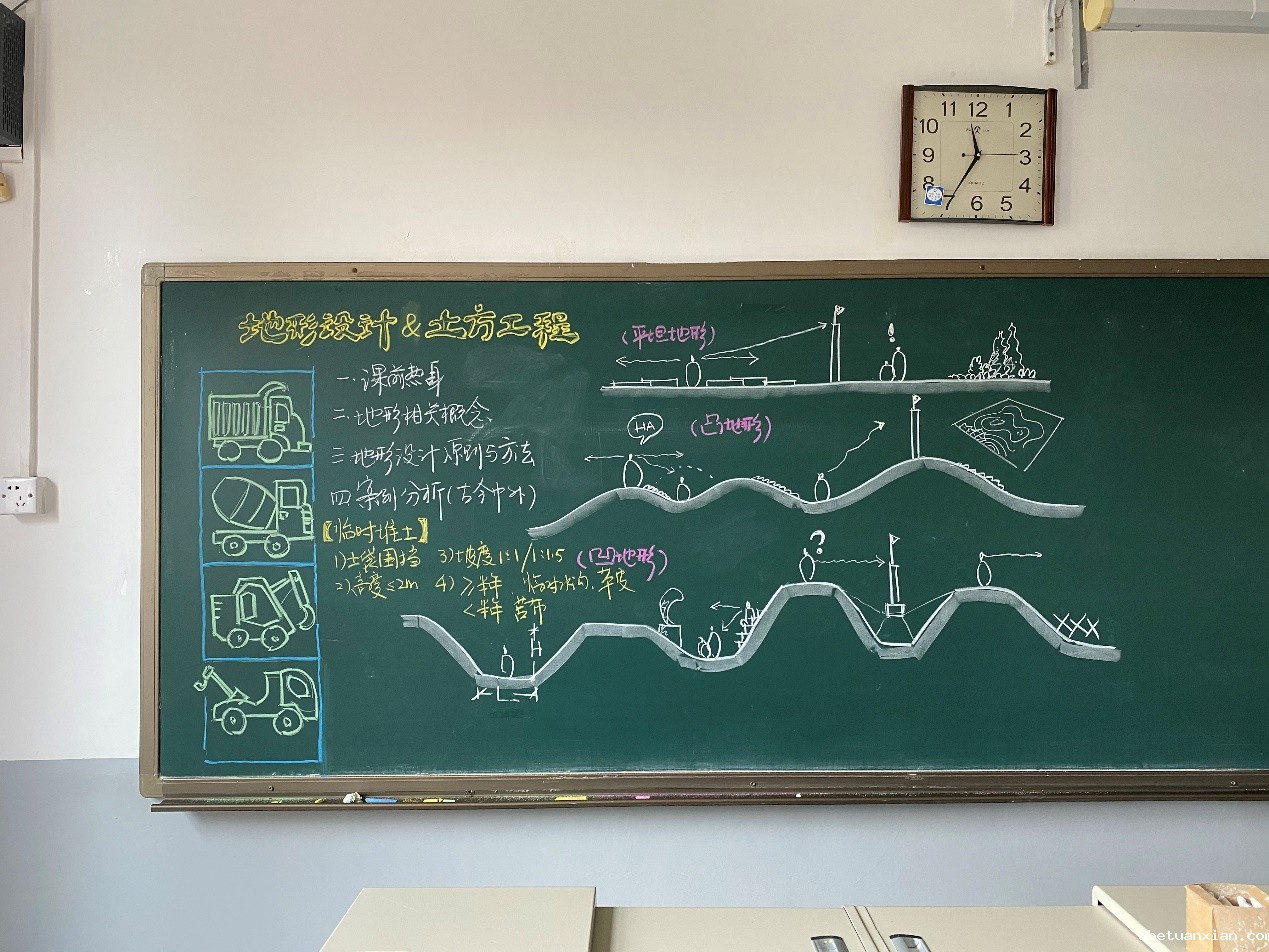 地形设计 & 土方工程
一.课前热身
二.地形相关概念
三.地形设计原则与方法
四.案例分析(古今中外)
【临时堆土】
1)土袋围挡 3)坡度1:1/1:1.5
2)高度≤2m 4)≥半年.临时.草皮
<半年 苫布
(平坦地形)
HA
(凸地形)
(凹地形)
?
H
L
11 12 1
10 2
9 3
8 4
7 6 5
chetuanxian.com